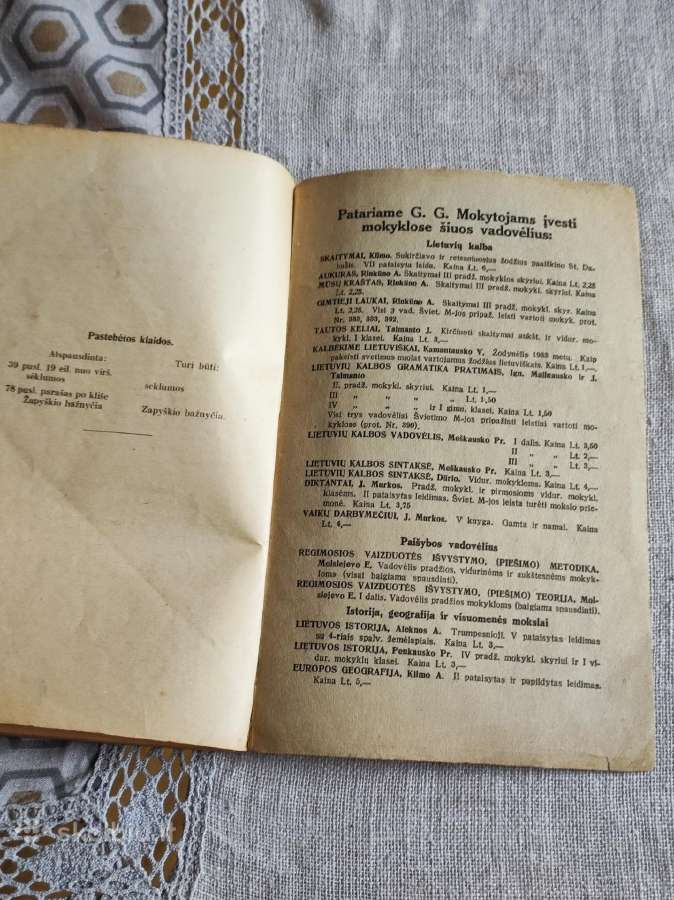 Pastebėtos klaidos.
Atspausdinta: Turi būti:
39 pusl. 19 eil. nuo virš.
sėklumos seklumos
78 pusl. parašas po kliše
Žapyškio bažnyčia Zapyškio bažnyčia.
Patariame G. G. Mokytojams įvesti
mokyklose šiuos vadovėlius:
Lietuvių kalba
SKAITYMAI, Klimo. Sukirčiavo ir retesniuosius žodžius paaiškino St. Da-
bušis. VII pataisyta laida. Kaina Lt. 6,—
AUKURAS, Rinkūno A. Skaitymai III pradž. mokyklos skyriui. Kaina Lt. 2,25
MŪSŲ KRAŠTAS, Rinkūno A. Skaitymai III pradž. mokykl. skyriui. Kaina
Lt. 2,25.
GIMTIEJI LAUKAI, Rinkūno A. Skaitymai III pradž. mokykl. skyr. Kaina
Lt. 2,25. Visi 3 vad. Šviet. M-jos pripaž. leisti vartoti mokyk. prot.
Nr. 383, 393, 392.
TAUTOS KELIAI, Talmanto J. Kirčiuoti skaitymai aukšt. ir vidur. mo-
kykl. I klasei. Kaina Lt. 3,—
KALBĖKIME LIETUVIŠKAI, Kamantausko V. Žodynėlis 1983 metu. Kaip
pakeisti svetimus muolat vartojamus žodžius lietuviškais. Kaina Lt. 1,—
LIETUVIŲ KALBOS GRAMATIKA PRATIMAIS, Ign. Malinausko ir J.
Talmanto
II, pradž. mokykl. skyriui. Kaina Lt. 1,—
III „ „ „ „ Lt. 1,50
IV „ „ „ ir I gimn. klasei. Kaina Lt. 1,50
Visi trys vadovėliai Švietimo M-jos pripažinti leistini vartoti mo-
kyklose (prot. Nr. 390).
LIETUVIŲ KALBOS VADOVĖLIS, Meškausko Pr. I dalis. Kaina Lt. 3,50
II „ „ Lt. 2,—
III „ „ Lt. 3,—
LIETUVIŲ KALBOS SINTAKSĖ, Meškausko Pr. Kaina Lt. 3,—
LIETUVIŲ KALBOS SINTAKSĖ, Dūrio. Vidur. mokykloms. Kaina Lt. 4,—
DIKTANTAI, J. Murkos. Pradž. mokykl. ir pirmosioms vidur. mokykl.
klasėms. II pataisytas leidimas. Šviet. M-jos leista turėti mokslo prie-
monė. Kaina Lt. 3,75
VAIKŲ DARBYMEČIUI, J. Murkos. V knyga. Gamta ir namai. Kaina
Lt. 4,—
Paišybos vadovėlius
REGIMOSIOS VAIZDUOTĖS IŠVYSTYMO, (PIEŠIMO) METODIKA,
Moisiejevo E. Vadovėlis pradžios, vidurinėms ir aukštesnėms mokyk-
loms (visai baigiama spausdinti).
REGIMOSIOS VAIZDUOTĖS IŠVYSTYMO, (PIEŠIMO) TEORIJA, Moi-
siejevo E. I dalis. Vadovėlis pradžios mokykloms (baigiama spausdinti).
Istorija, geografija ir visuomenės mokslai
LIETUVOS ISTORIJA, Aleknos A. Trumpesnioji. V pataisytas leidimas
su 4-riais spalv. žemėlapiais. Kaina Lt. 3,—
LIETUVOS ISTORIJA, Penkausko Pr. IV pradž. mokykl. skyriui ir I vi-
dur. mokyklų klasei. Kaina Lt. 3,—
EUROPOS GEOGRAFIJA, Klimo A. II pataisytas ir papildytas leidimas.
Kaina Lt. 5,—